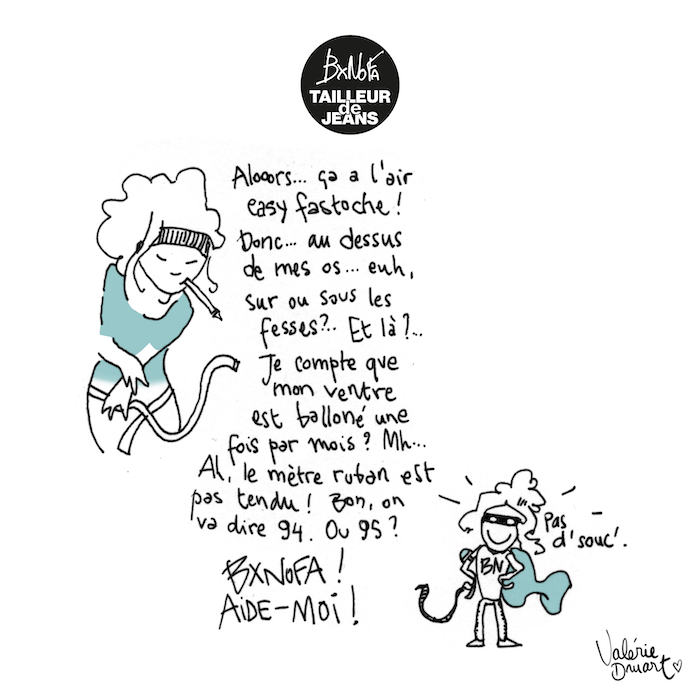 BxNoFA
TAILLEUR
de
JEANS
Alooors... ça a l'air
easy fastoche !
Donc... au dessus
de mes os... euh,
sur ou sous les
fesses?.. Et là ?...
Je compte que
mon ventre
est balloné une
fois par mois ? Mh...
Ah, le mètre ruban est
pas tendu ! Bon, on
va dire 94. Ou 95 ?
BXNOFA !
AIDE-MOI !
Pas
d'souc'.
BN
Valérie
Druart